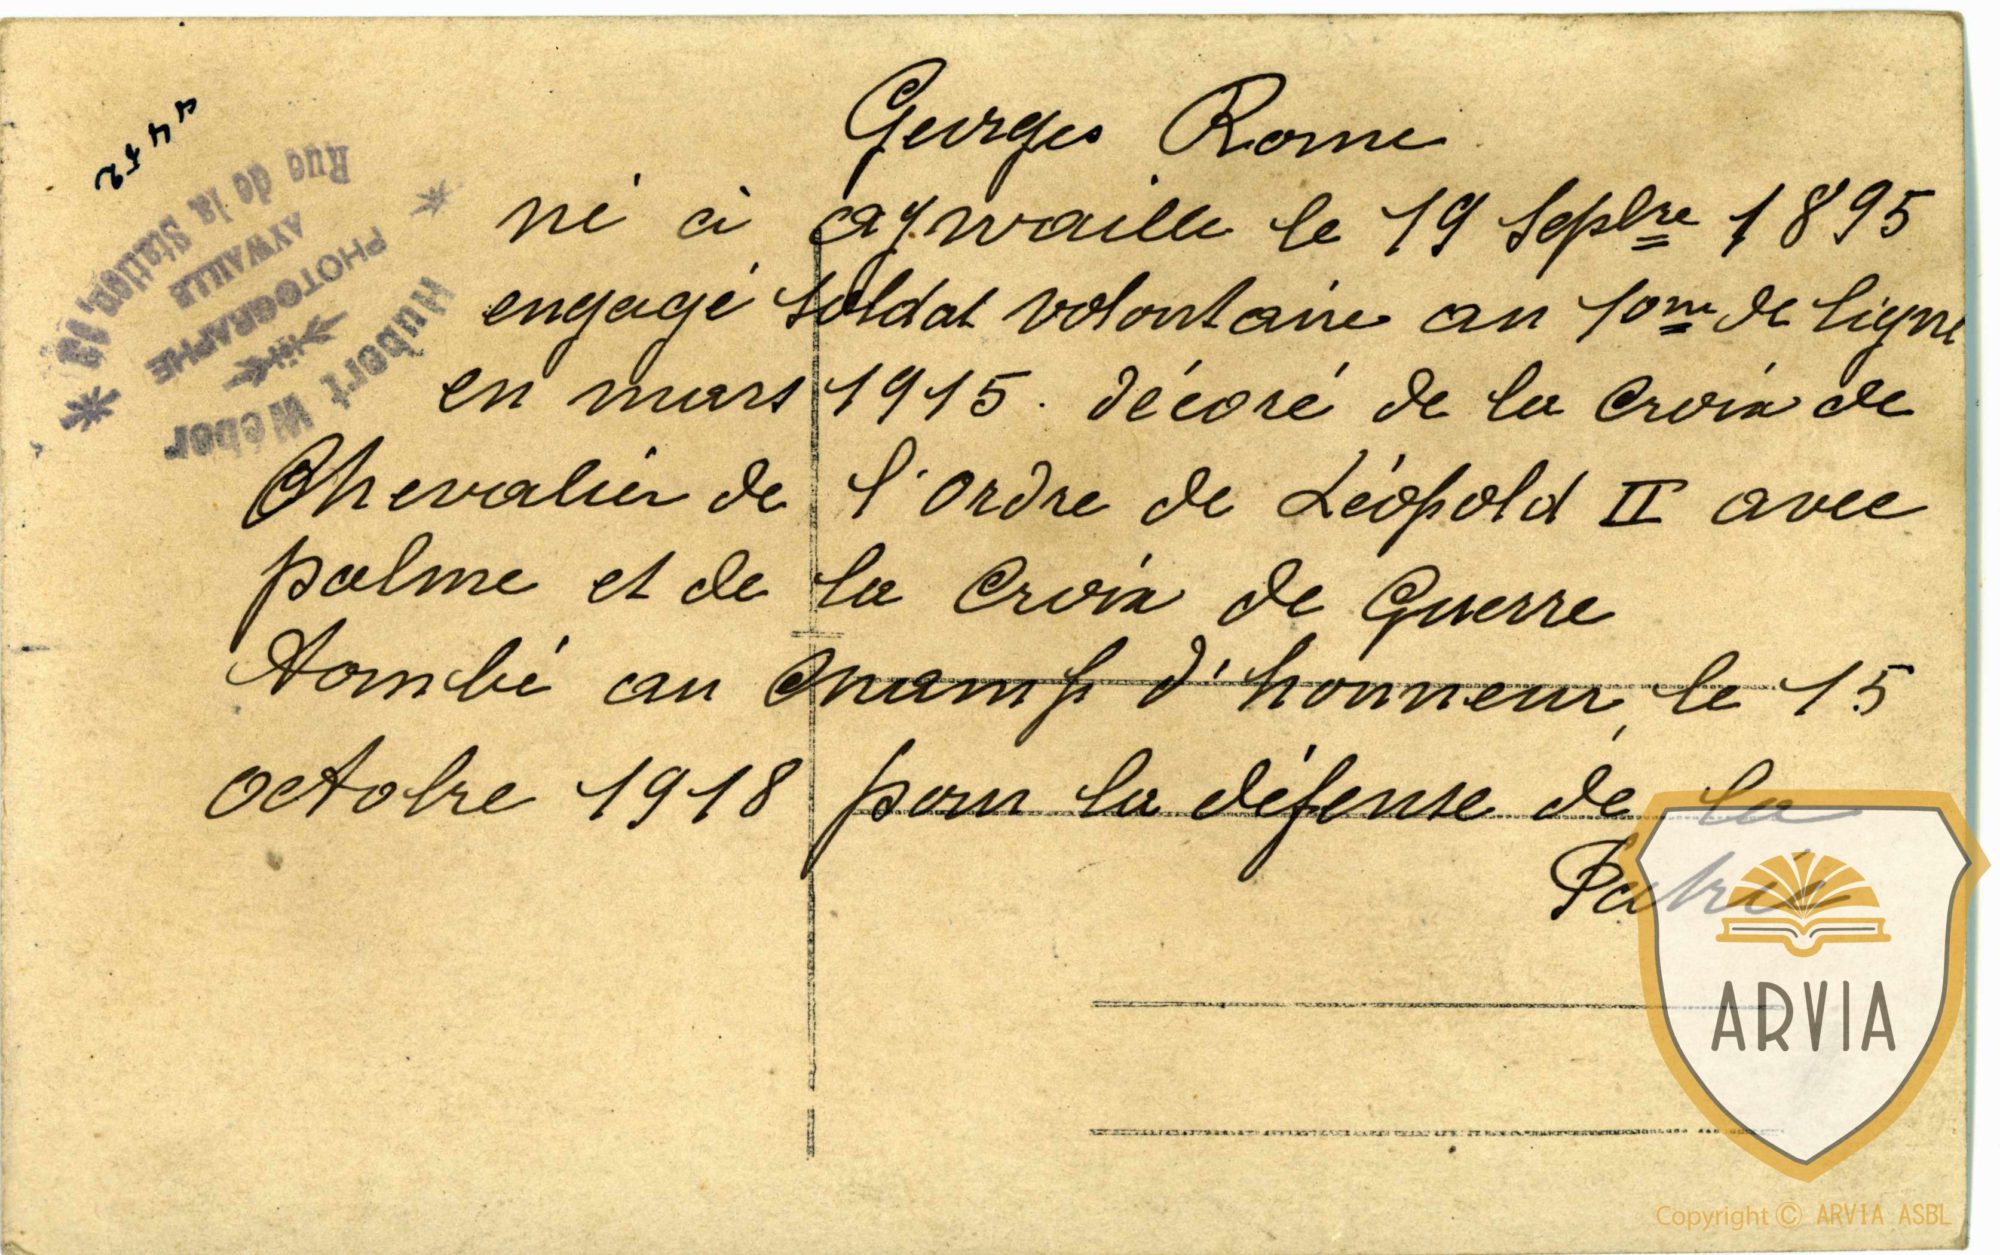 4452
Hubert Wéber
PHOTOGRAPHE
AYWAILLE
Rue de la Station,
Georges Rome
né à aywaille le 19 Septbre 1895
engagé soldat volontaire au 10me de ligne
en mars 1915. décoré de la Croix de
Chevalier de l'Ordre de Léopold II avec
palme et de la Croix de Guerre
tombé au Champ d'honneur le 15
octobre 1918 pour la défense de la
Patrie
ARVIA
Copyright © ARVIA ASBL